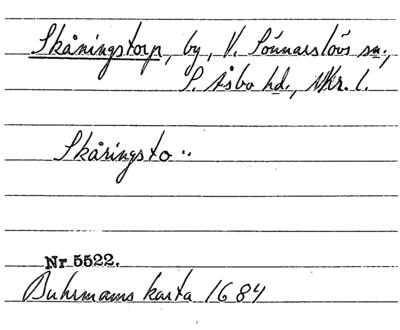 Skåningstorp, by, V. Sönnarslövs sn.,
S. Åsbo hd., Mkr. l.
Skåringsto..
Nr 5522.
Buhrmans karta 1684